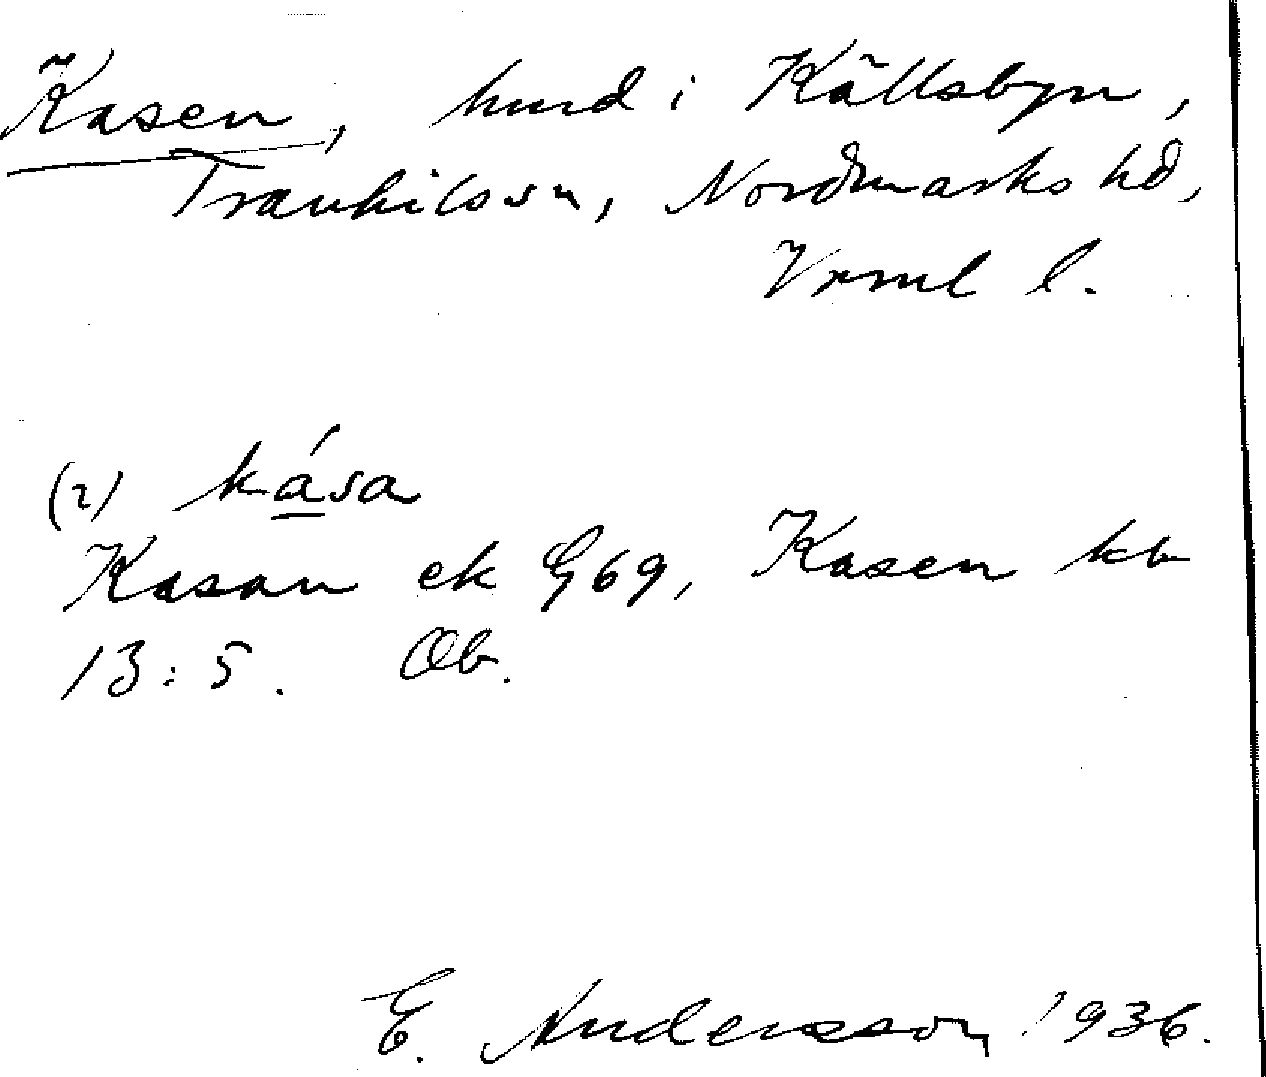 Kasen, hmd i Källsbyn,
Trankils sn, Nordmarks hd,
Vrml l.
(2) kása
Kasan ek G69, Kasen kb
13:5. Ob.
E. Andersson 1936.